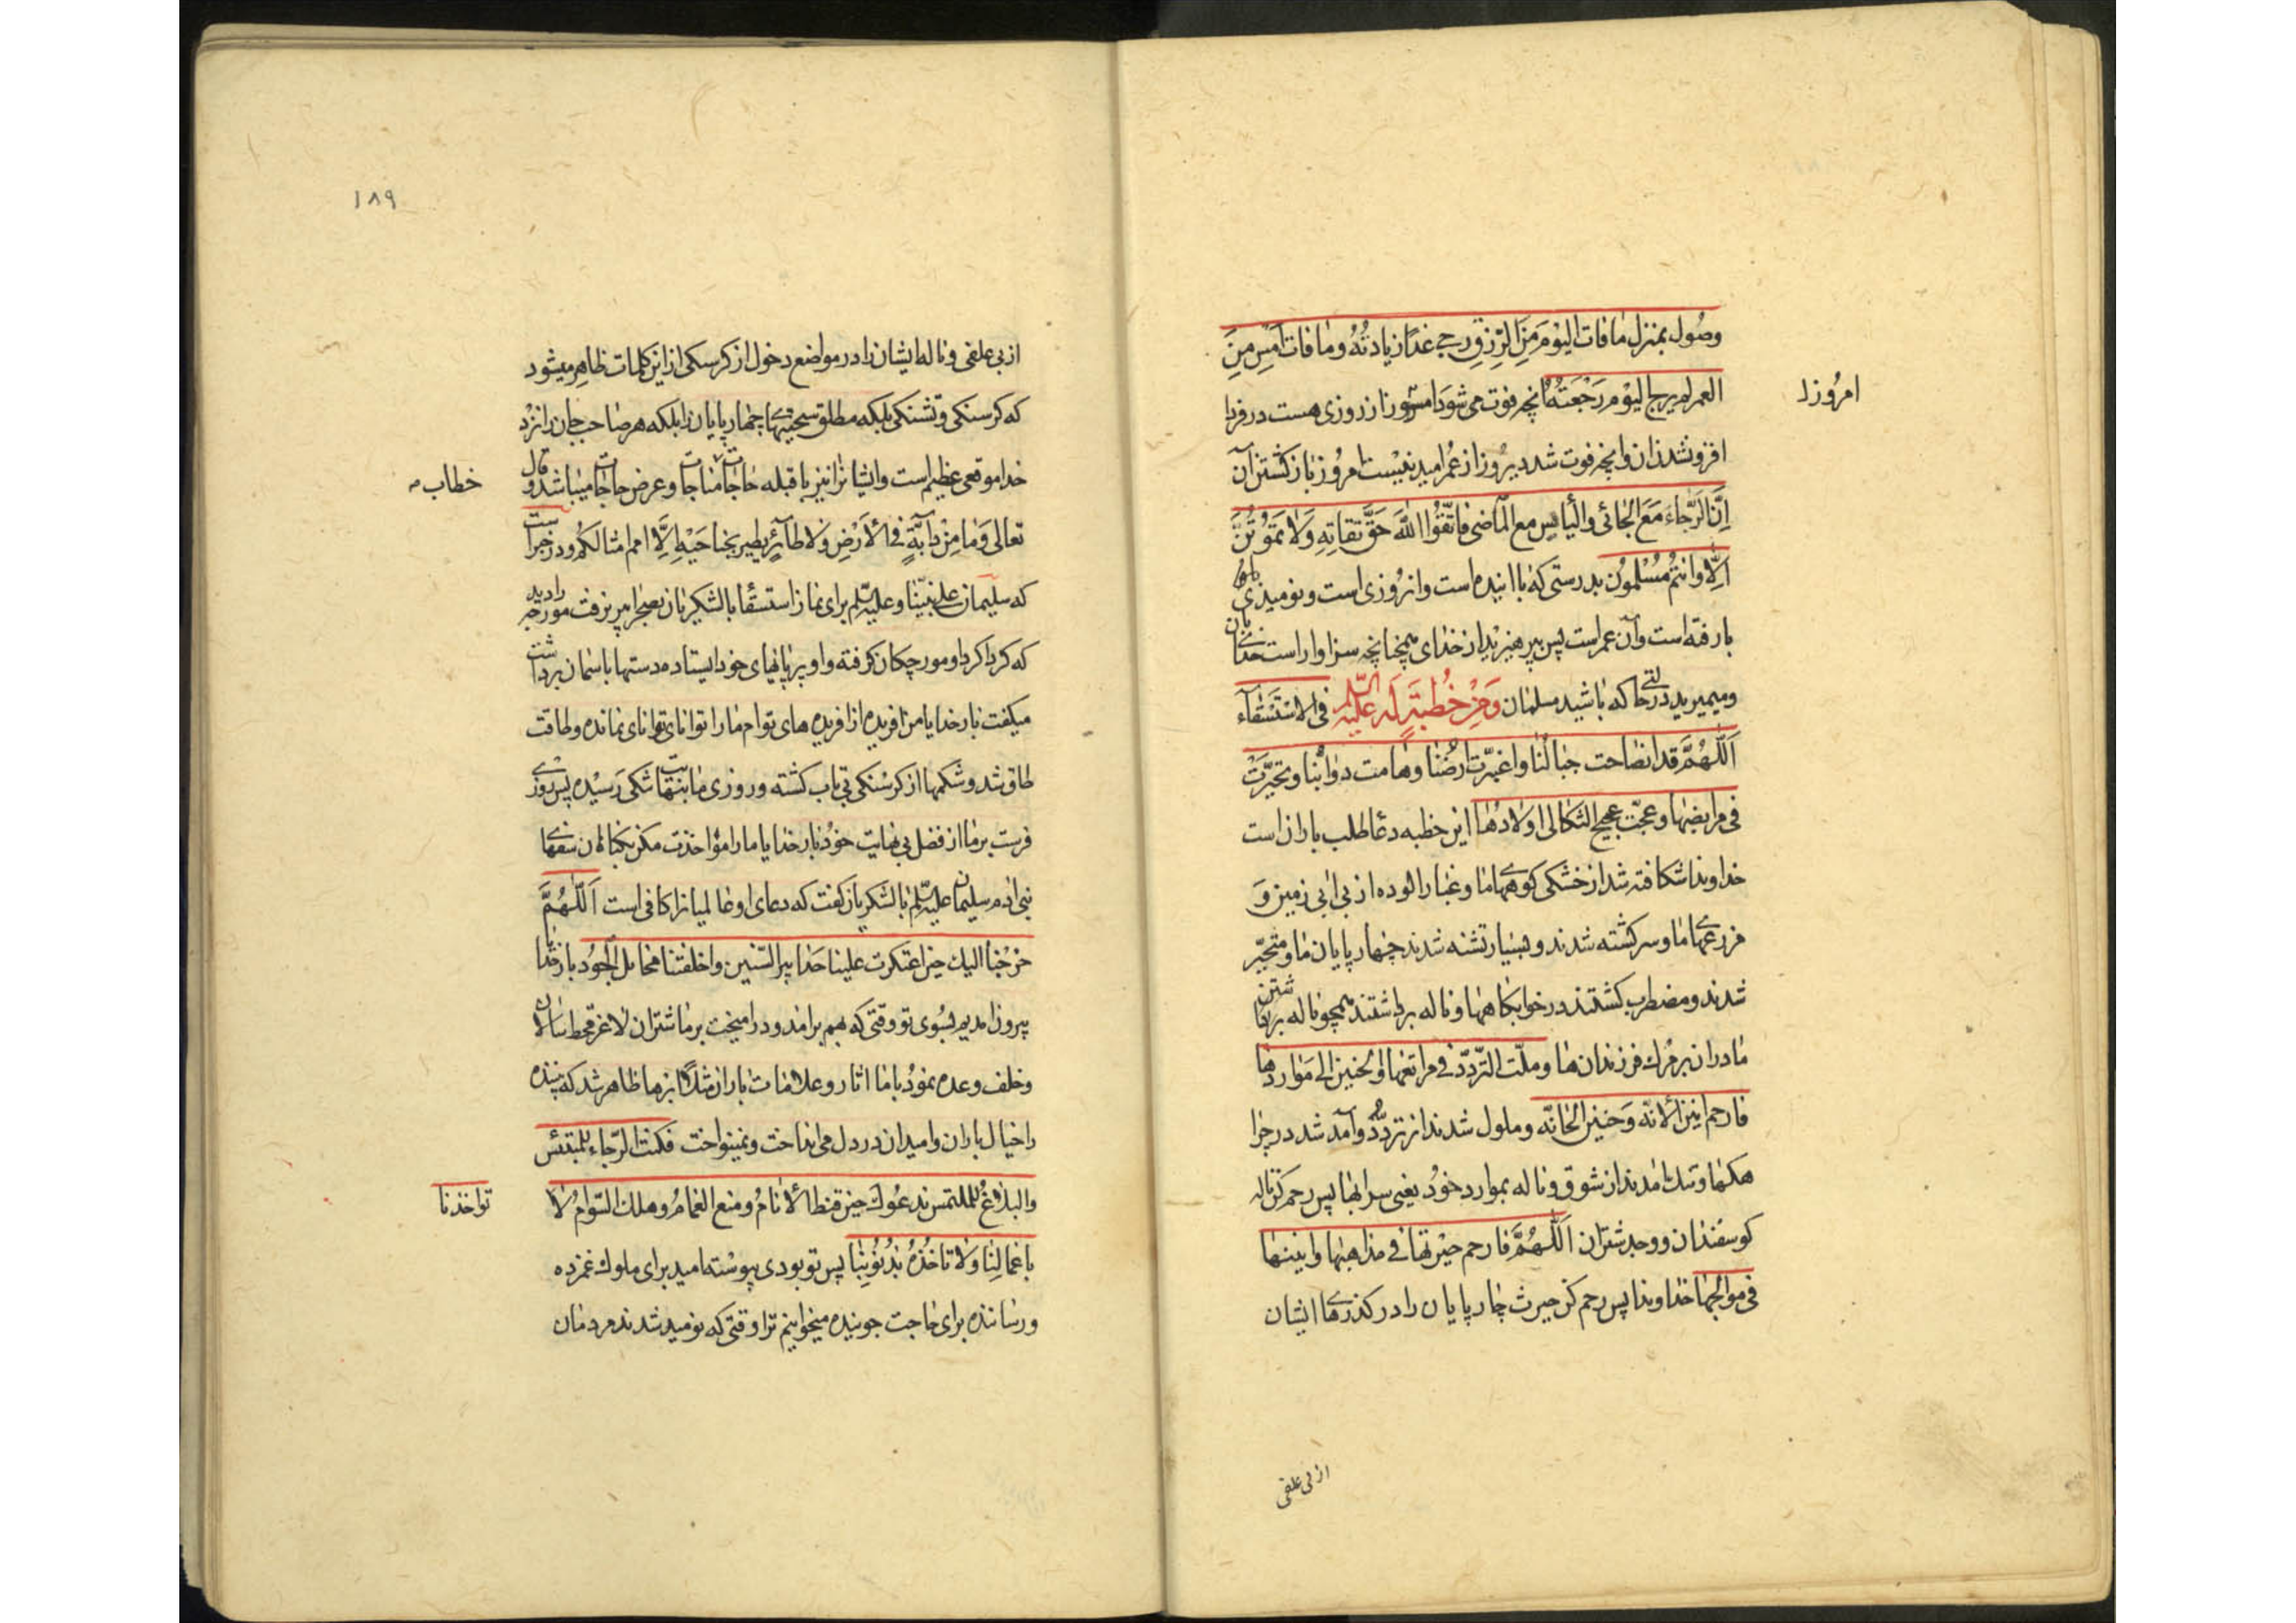 وصول بمنزل مافات الیوم من الرزق رجی غدا زیادته وما فات امس من
العمر لم یرج الیوم رجعته انچه فوت می شود امروز از روزی هست در فردا
امروز را
افزون شدن ان وانچه فوت شد دیروز از عمر امید نیست امروز باز کشتن آن
اِنَّ الرَّجاءَ مَعَ الجائی والیأس مع الماضی فاتّقُوا اللّٰهَ حَقَّ تقاتِهِ وَلا تموتُنَّ
اِلّا وانتم مُسْلِمُون بدرستی که با اینده است وان روزی است ونومیذی
با رفته است وآن عمر است پس بپرهیزید از خدای همچنانچه سزاوار است
ومیمیرید در حالتی که باشید مسلمان وَمِنْ خُطبَةٍ لَه عَلَیْهِ السّلم فی الاسْتسْقاء
اَللّٰهُمَّ قد انصاحت جبالُنا واغبرّت ارضُنا وهامت دوابُّنا وتحیّرَتْ
فی مرابضِها وعجّت عجیج الثکالی اولادها این خطبه دعا طلب باران است
خداوندا شکافته شد از خشکی کوههای ما وغبار الوده از بی ابی زمین و
مزرعهای ما وسرکشته شدند وبسیار تشنه شدند چهار پایان ما ومتحیّر
شدند ومضطرب کشتند در خوابکاهها وناله برداشتند همچو ناله برداشتن
مادران بر مرك فرزندان ها وملّت التّردّد فی مراتعها والحنین الی مواردها
فارحم انین الانّه وَحنین الحانّه وملول شدند از تردّد وآمد شد در چرا
هکنها وتنك امدند از شوق وناله بموارد خود یعنی سرابها پس رحم کن ناله
کوسفندان ووجد شتران اَللّٰهُمَّ فارحم حیْرتها فی مذاهبها وانینها
فی موالجها خداوندا پس رحم کن حیرت چار پایان را در کذرهای ایشان
از بی علفی
۱۸۹
از بی علفی وناله ایشان را در مواضع دخول از کرسنکی از این کلمات ظاهر میشود
که کرسنکی وتشنکی بلکه مطلق سختیهای چهار پایان را بلکه هر صاحب جان را نزد
خدا موقعی عظیم است وایشان را نیز با قبله حاجات مناجات وعرض حاجات میباشد وقال
خطاب
تعالی وَمَا مِنْ دابَّةٍ فی الاَرْضِ وَلا طائرٍ یطیر بجناحَیْهِ اِلَّا امم امثالکم ودر خبر است
که سلیمان علی نبیّنا وعلیه السّلم برای نماز استسقا با لشکریان بصحرا میرفت مورچه را دید
که کرداکرد او مورچکان کرفته واو بر پاهای خود ایستاده دستها باسمان برداشت
میکفت بار خدایا من افریده از افریده های توام ما را توانای توانای نمانده وطاقت
طاق شد وشکمها از کرسنکی بی تاب کشته وروزی ما بنهایت تنکی رسیده پس روزی
فرست بر ما از فضل بی نهایت خود بار خدایا ما را مؤاخذت مکن بکناهان سفهای
بنی ادم سلیمان علیه السّلم با لشکریان کفت که دعای او عالمیان را کافی است اَللّٰهُمَّ
خرجنا الیك حین اعتکرت علینا حدابیر السّنین واخلفتنا مخایل الجُود بار خدایا
بیرون امدیم بسوی تو وقتی که بهم برامد ودرامیخت بر ما شتران لاغر قحط سالان
وخلف وعده نمود با ما اثار وعلامات باران مثل ابرها ظاهر شد که بیننده
را خیال باران وامید ان در دل می انداخت ونمینواخت فکنت الرّجاء للمبتئس
والبلاغُ للملتمس ندعوك حین قنط الانامُ ومنع الغمامُ وهلك السّوامُ لا
تواخذنا
باعمالِنا وَلا تاخُذْنا بذُنُوبِنا پس تو بودی پیوسته امید برای ملوك غمزده
ورساننده برای حاجت جوینده میخوانیم ترا وقتی که نومید شدند مردمان